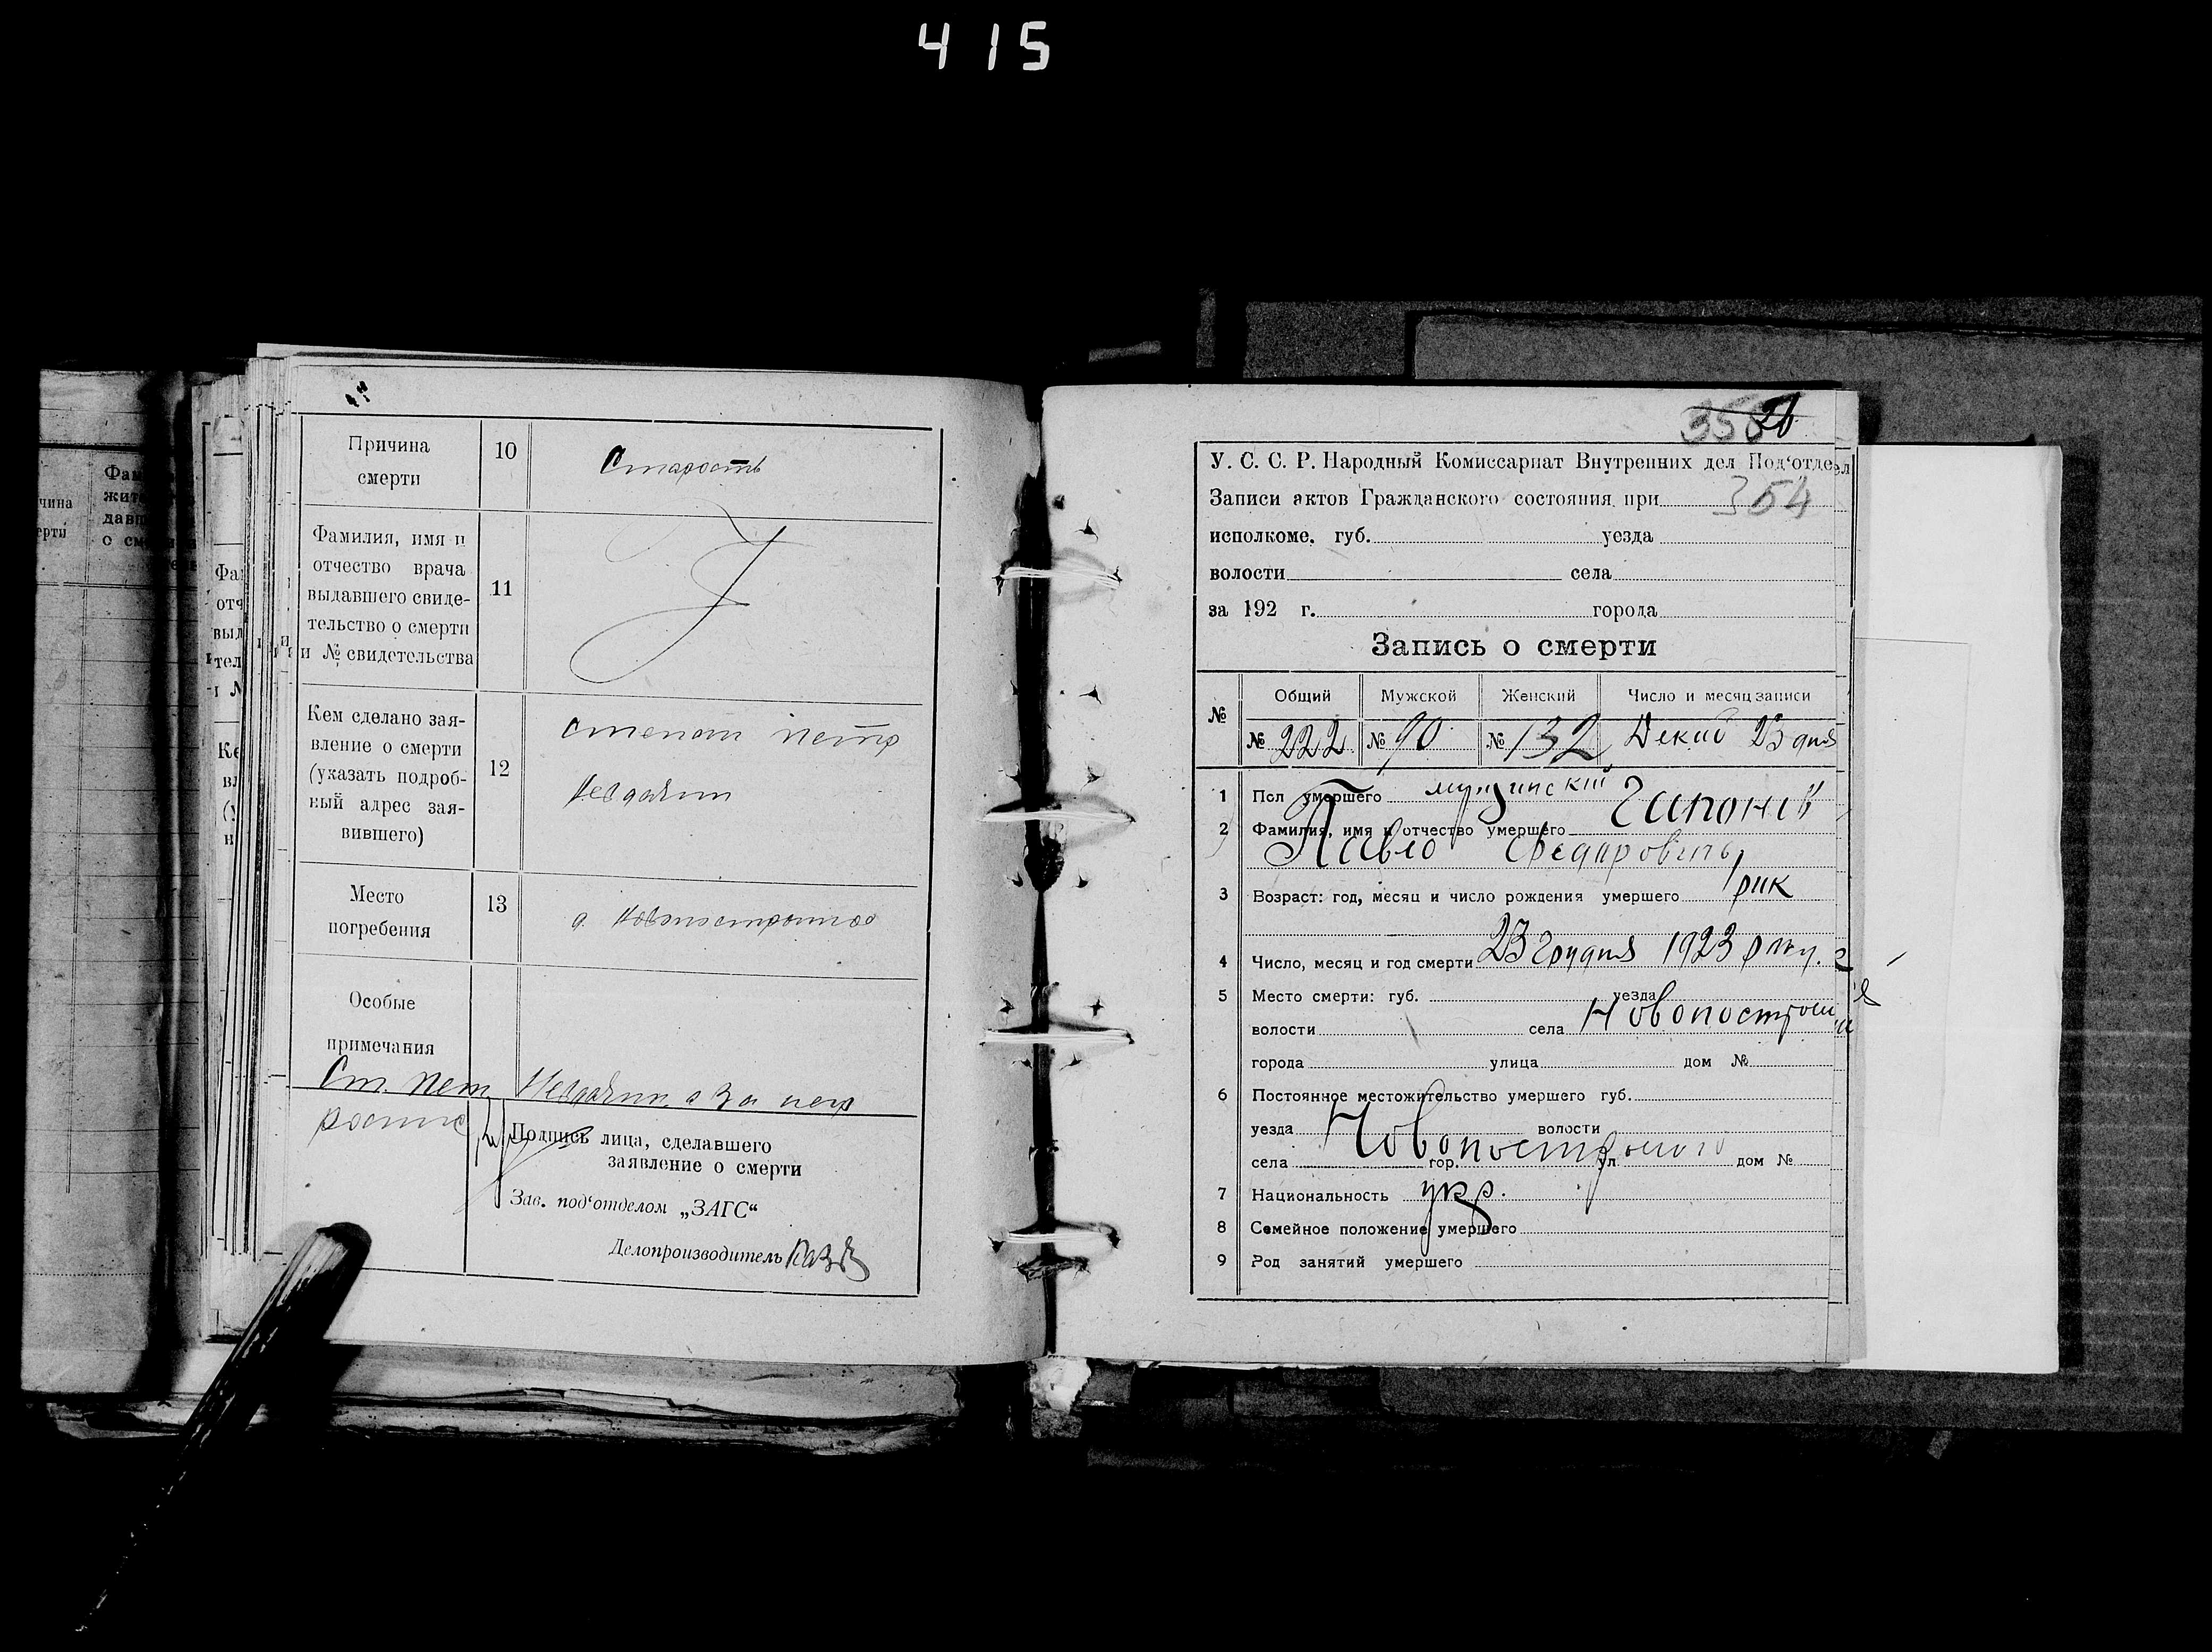 415
Причина
смерти
10
Старость
Фамилия, имя и
отчество врача
выдавшего свиде-
тельство о смерти
и № свидетельства
11
Кем сделано зая-
вление о смерти
(указать подроб-
ный адрес зая-
вившего)
12
степан петр
Место
погребения
13
Особые
примечания
Подпись лица, сделавшего
заявление о смерти
Зав. под‘отделом „ЗАГС“
Делопроизводитель
26
У. С. С. Р. Народный Комиссариат Внутренних дел Под‘отдел
Записи актов Гражданского состояния при 354
исполкоме. губ. уезда
волости села
за 192 г. города
Запись о смерти
№ Общий Мужской Женский Число и месяц записи
№ 222 № 90 № 132 Декаб 23 дня
1 Пол умершего мужинский
2 Фамилия, имя и отчество умершего
Павло Федаровичь
3 Возраст: год, месяц и число рождения умершего рик
4 Число, месяц и год смерти 23 Грудня 1923 року.
5 Место смерти: губ. уезда
волости села
города улица дом №
6 Постоянное местожительство умершего губ.
уезда волости
села гор. ул. дом №
7 Национальность укр.
8 Семейное положение умершего
9 Род занятий умершего